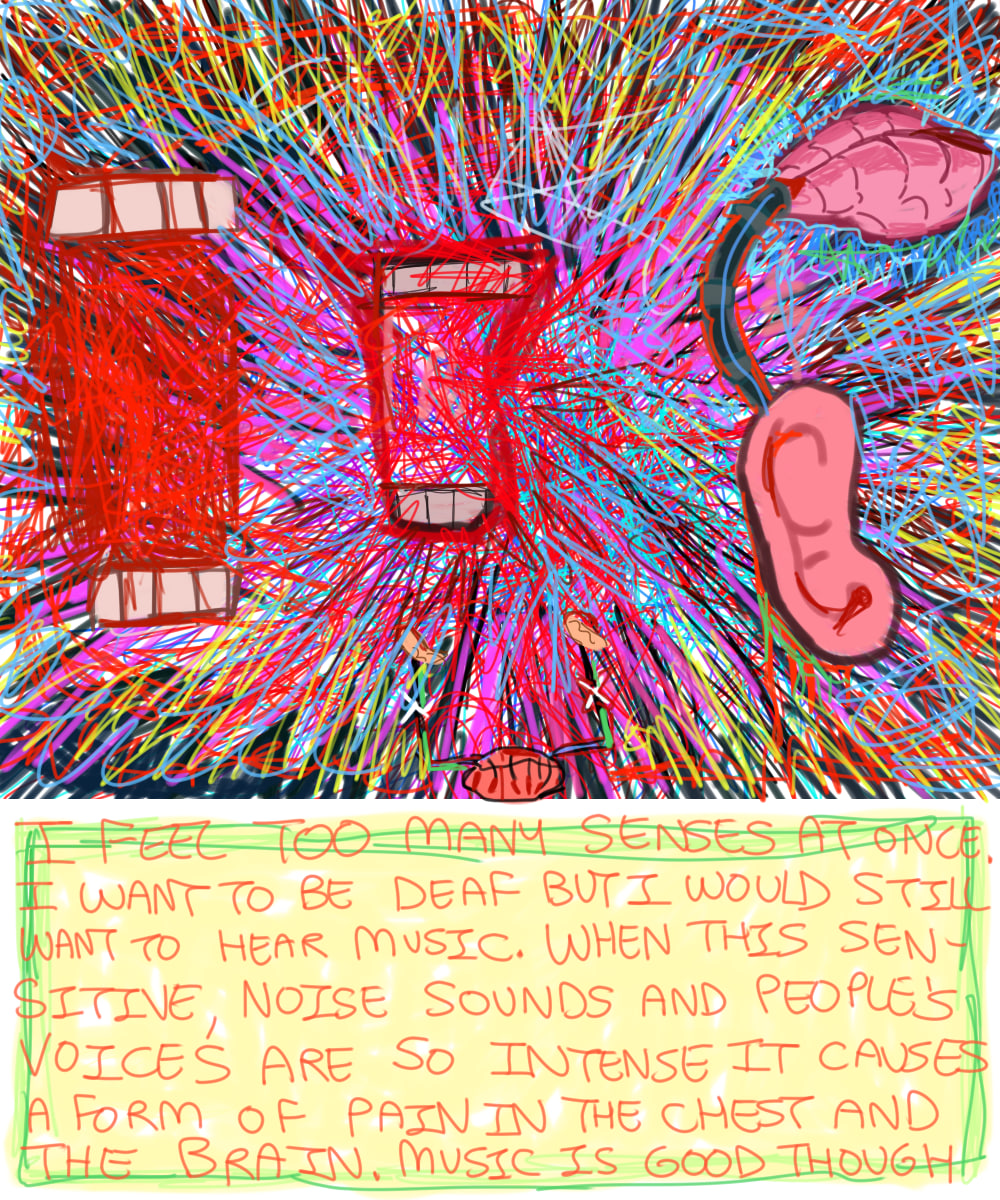 I FEEL TOO MANY SENSES AT ONCE.
I WANT TO BE DEAF BUT I WOULD STILL
WANT TO HEAR MUSIC. WHEN THIS SEN-
SITIVE, NOISE SOUNDS AND PEOPLE'S
VOICE'S ARE SO INTENSE IT CAUSES
A FORM OF PAIN IN THE CHEST AND
THE BRAIN. MUSIC IS GOOD THOUGH